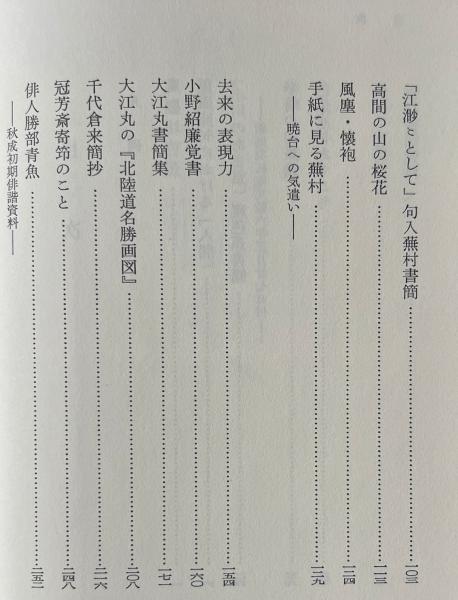 「江渺〻として」句入蕪村書簡……一〇三
高間の山の桜花……一一三
風塵・懐袍……一二四
手紙に見る蕪村……一二九
――暁台への気遣い――
去来の表現力……一五四
小野紹廉覚書……一六〇
大江丸書簡集……一七一
大江丸の『北陸道名勝画図』……二〇八
千代倉来簡抄……二一六
冠芳斎寄笻のこと……二四八
俳人勝部青魚……二五二
――秋成初期俳諧資料――